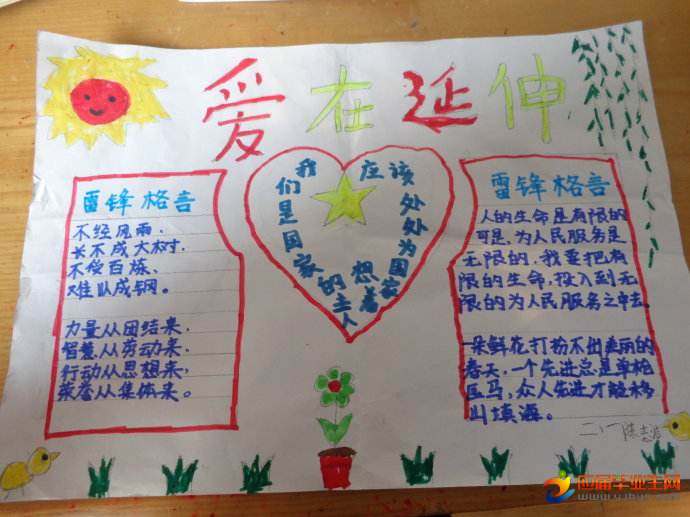 爱在延伸
雷锋格言
不经风雨,
长不成大树,
不受百炼,
难以成钢。
力量从团结来,
智慧从劳动来,
行动从思想来,
荣誉从集体来。
我们是国家的主人
应该处处为国家着想
雷锋格言
人的生命是有限的
可是,为人民服务是
无限的,我要把有
限的生命,投入到无
限的为人民服务之中去。
一朵鲜花打扮不出美丽的
春天,一个先进总是单枪
匹马,众人先进才能移
山填海。
应届毕业生网